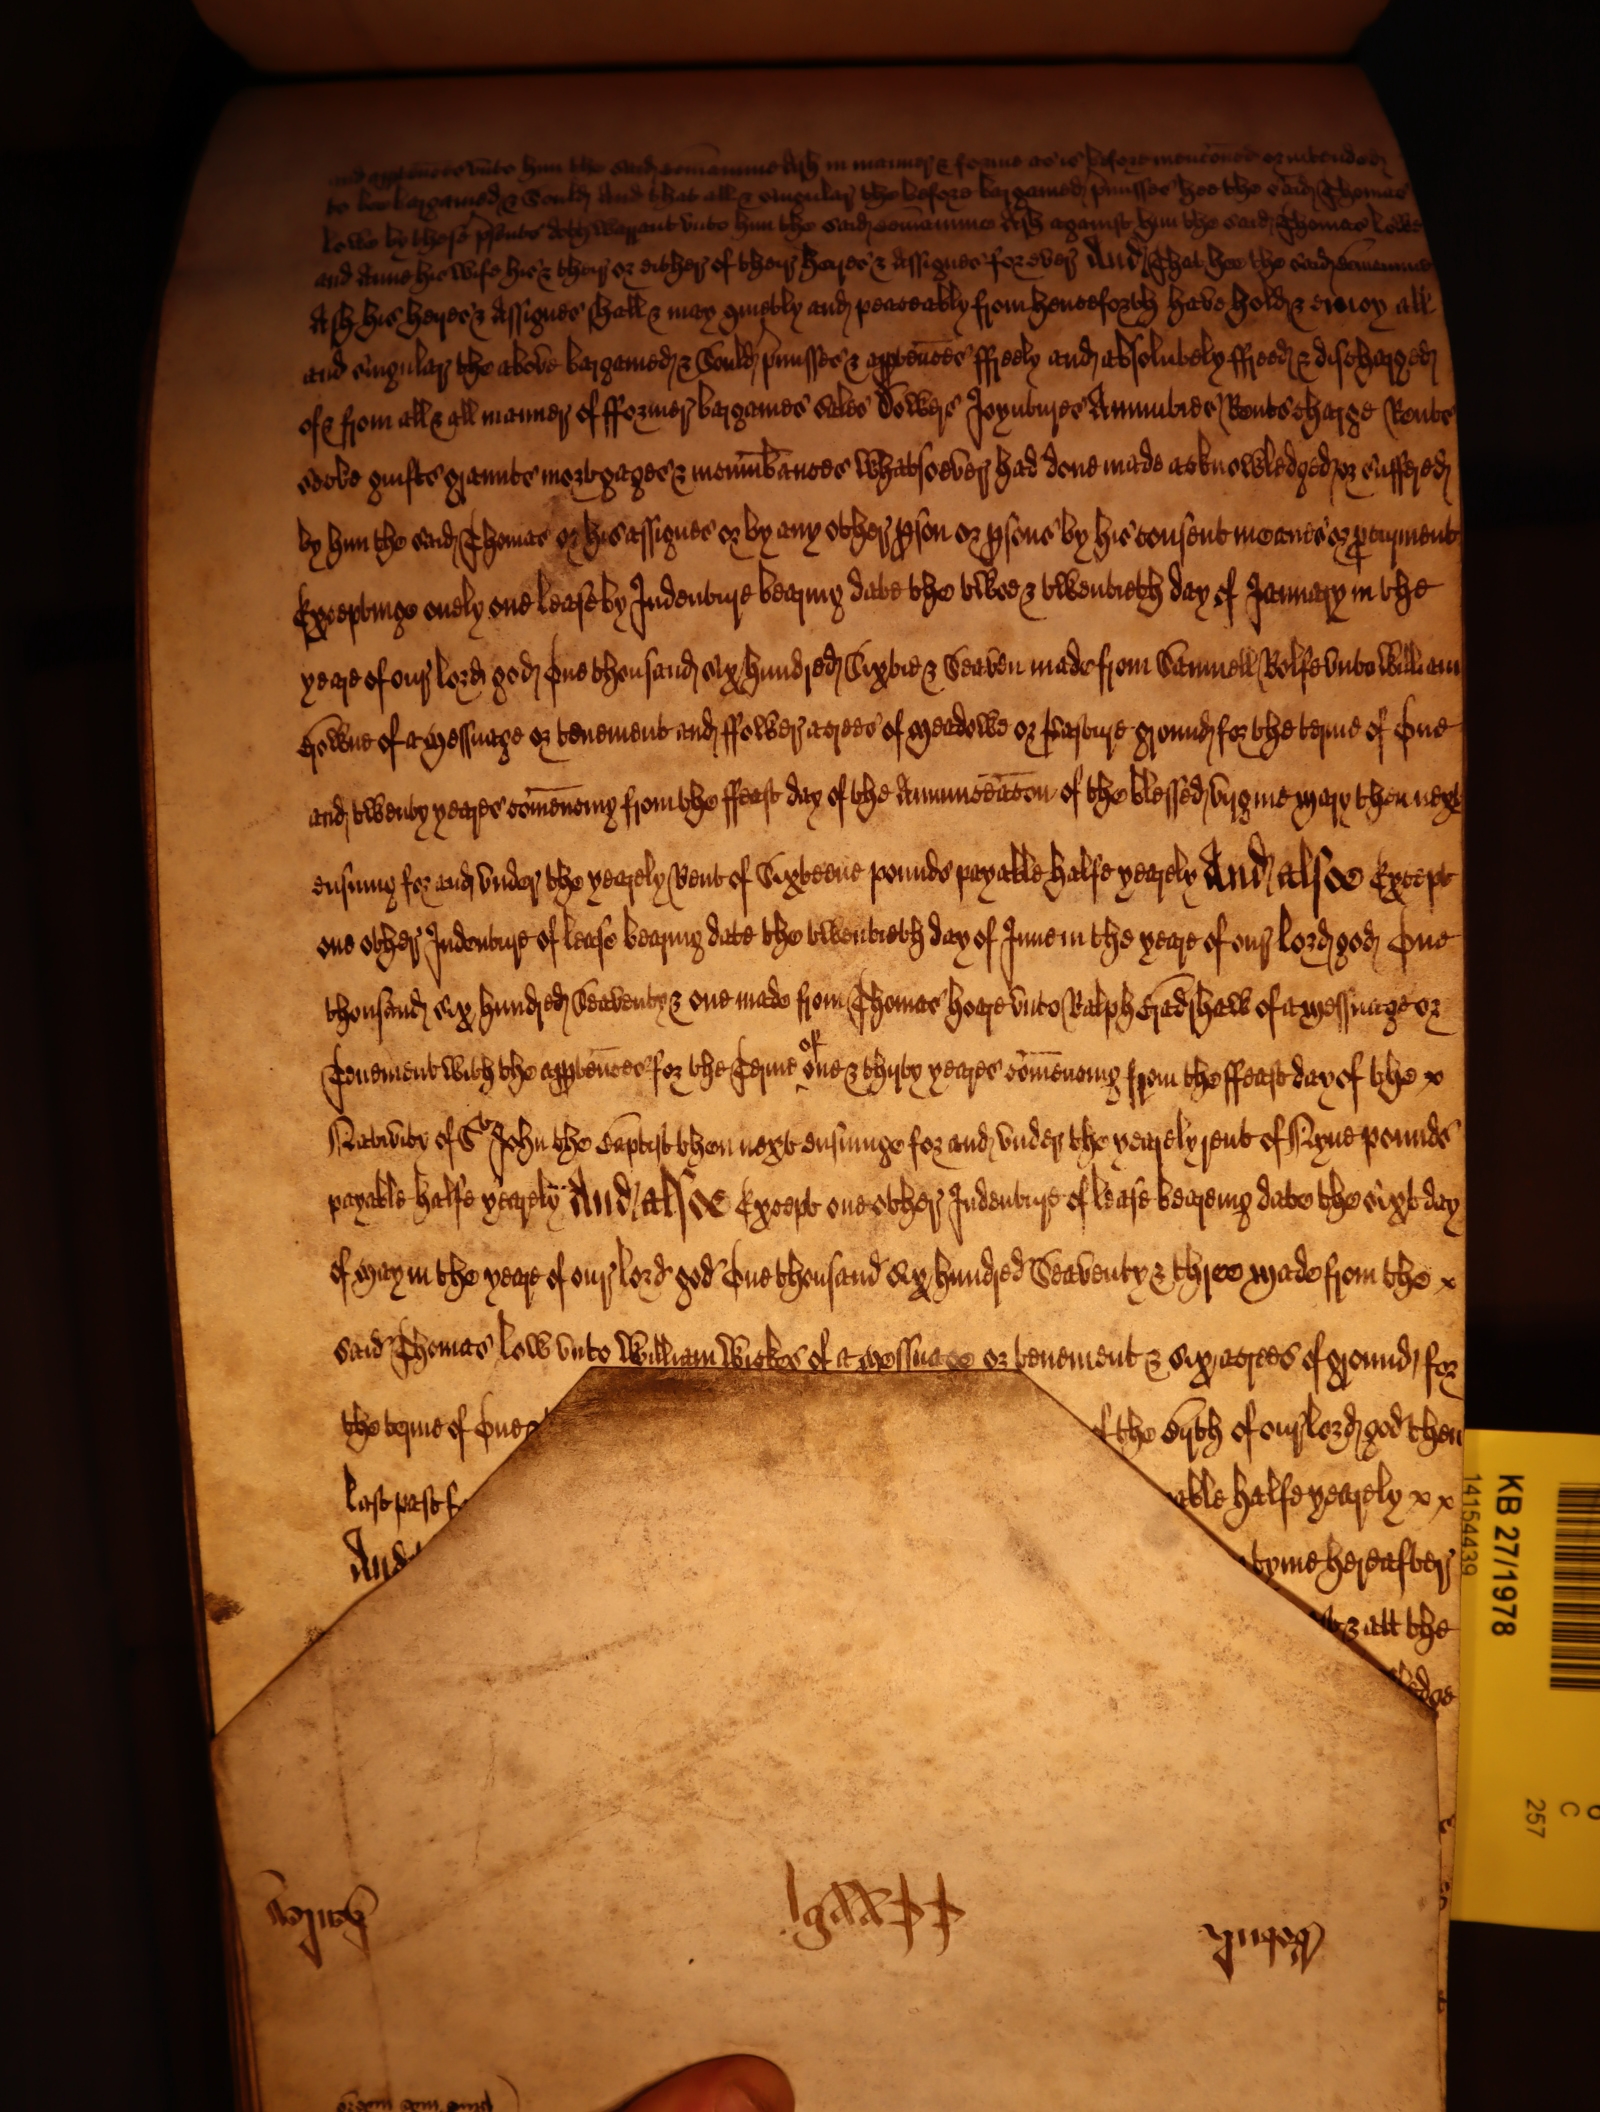 and apptences unto him the said Edmaunine Ash in manner & forme as is before menconed or intended
to bee bargained & Sould And that all & singular the before bargained pmisses hee the said Thomas
Lowe by these psents doth warrant unto him the said Ash against him the said Thomas Lowe
and Anne his wife his & their or either of their heires & Assignes for ever And That hee the said
Ash his heires & Assignes shall & may quietly and peaceably from henceforth have hold & enioy all
and singular the above bargained & Sould pmisses & apptences ffreely and absolutely ffreed & discharged
of & from all & all manner of fformer bargaines sales Dowers Joyntures Annuities Rents charge Rents
secke guifts graunts mortgages & incumbances whatsoever had done made acknowledged or suffered
by him the said Thomas or his assignes or by any other pson or psons by his consent meanes or pcurment
Exceptinge onely one lease by Indenture bearing date the twoe & twentieth day of January in the
yeare of our lord god One thousand six hundred Sixtie & Seaven made from Samuell Rolfe unto William
Browne of a Messuage or tenement and ffower acres of Meadowe or Pasture ground for the terme of One
and twenty yeares comencing from the ffeast day of the Annunciacon of the blessed virgine Mary then next
ensuing for and under the yearely Rent of Sixteene pounds payable halfe yearely And alsoe Except
one other Indenture of lease bearing date the twentieth day of June in the yeare of our lord god One
thousand six hundred Seaventy & one made from Thomas hoare unto Ralph Bradshaw of a Messuage or
Tenement with the apptences for the Terme of one & thirty yeares comencing from the ffeast day of the x
Nativity of St John the Baptist then next ensuinge for and under the yearely rent of Nyne pounds
payable halfe yearely And alsoe Except one other Indenture of lease beareing date the sixt day
of May in the yeare of our lord god One thousand six hundred Seaventy & three made from the x
said Thomas Low unto William Wickes of a Messuage or tenement & six acres of ground for
the terme of One of the Birth of our lord god then
last past able halfe yearely x x
And tyme hereafter
& all the
KB 27/1978
14154439
C
257